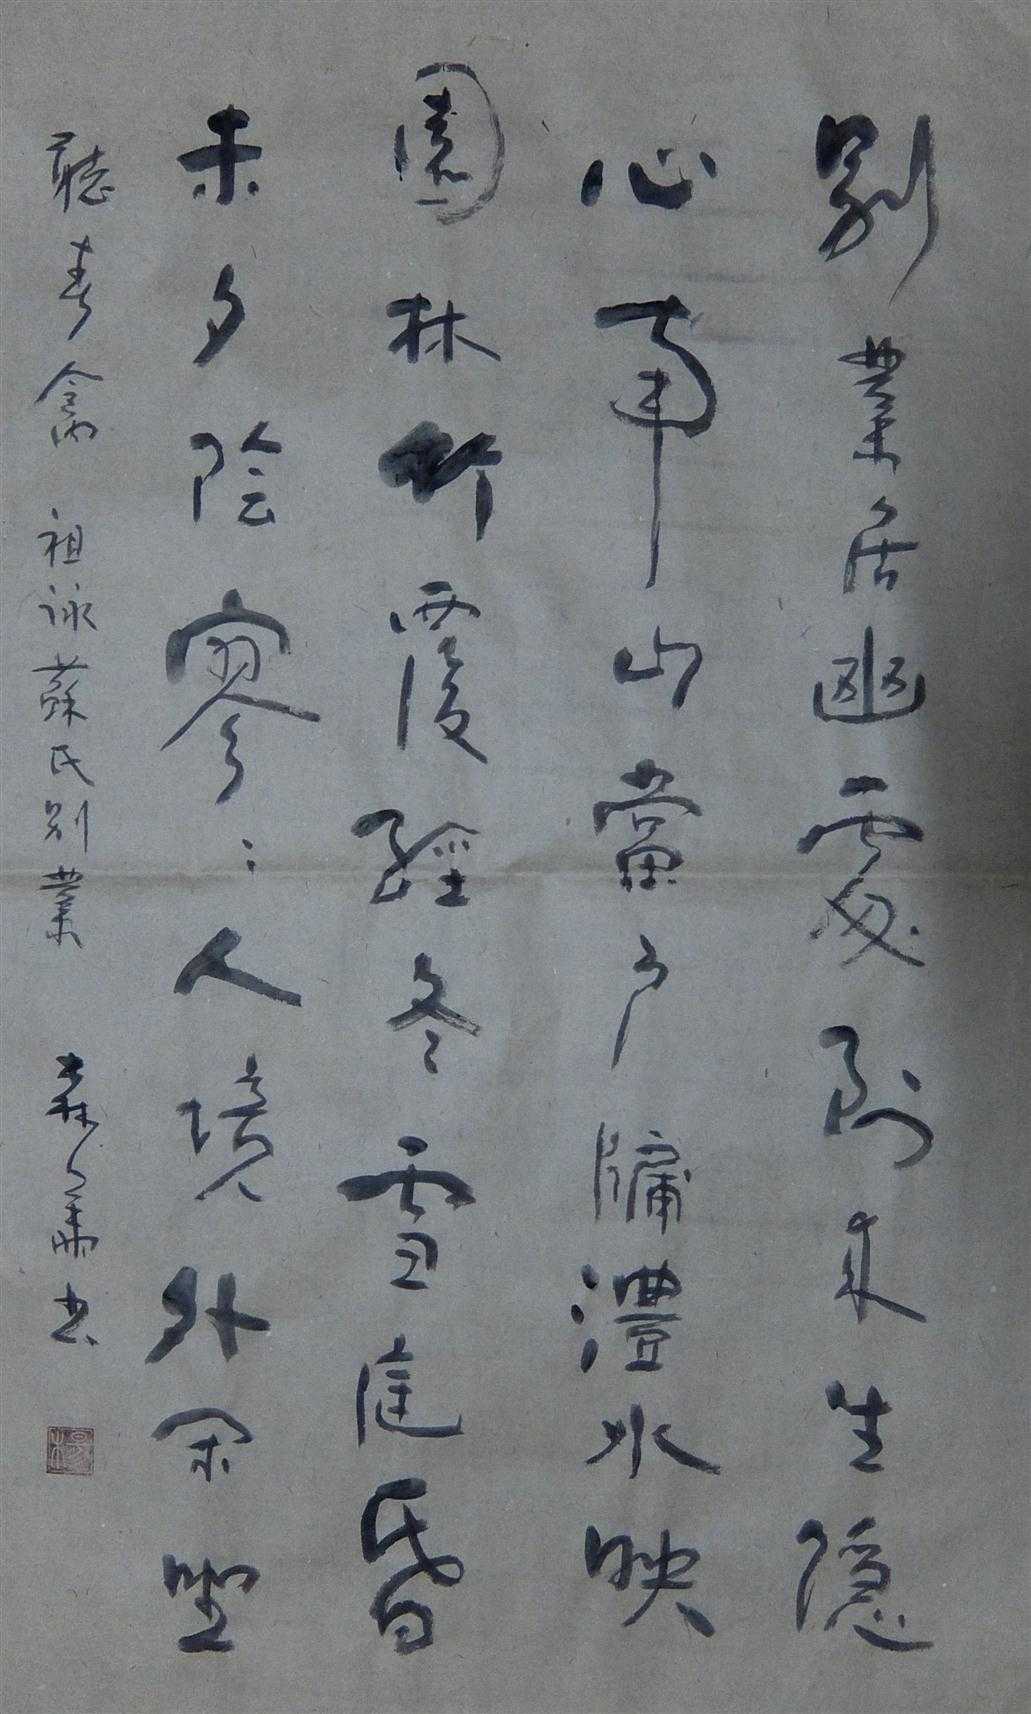 別業居幽處到来生隱
心南山當户牖澧水映
園林竹覆經冬雪庭昏
未夕陰寥〻人境外閑坐
聽春禽 祖詠蘇氏別業 森
楊